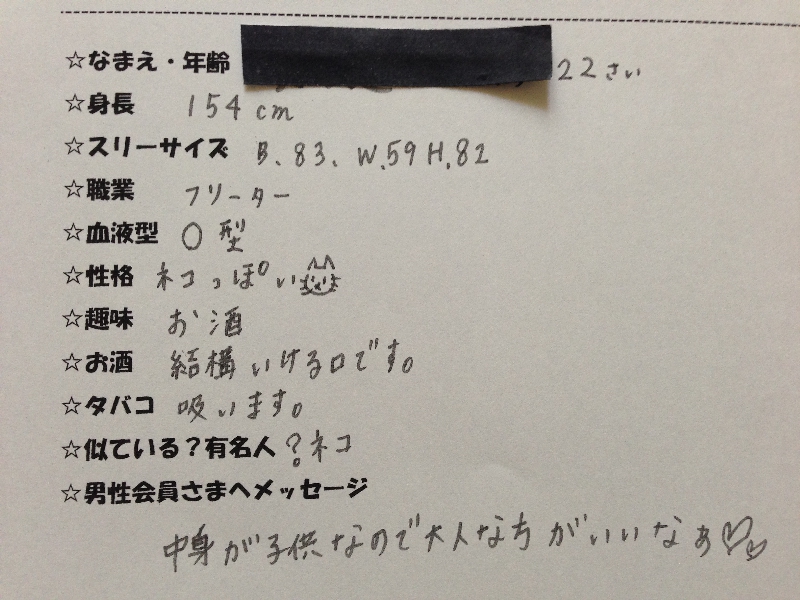 ☆なまえ・年齢 22さい
☆身長 154cm
☆スリーサイズ B、83、W.59 H.82
☆職業 フリーター
☆血液型 O型
☆性格 ネコっぽい
☆趣味 お酒
☆お酒 結構いける口です。
☆タバコ 吸います。
☆似ている?有名人 ?ネコ
☆男性会員さまへメッセージ
中身が子供なので大人な方がいいなぁ♡♡